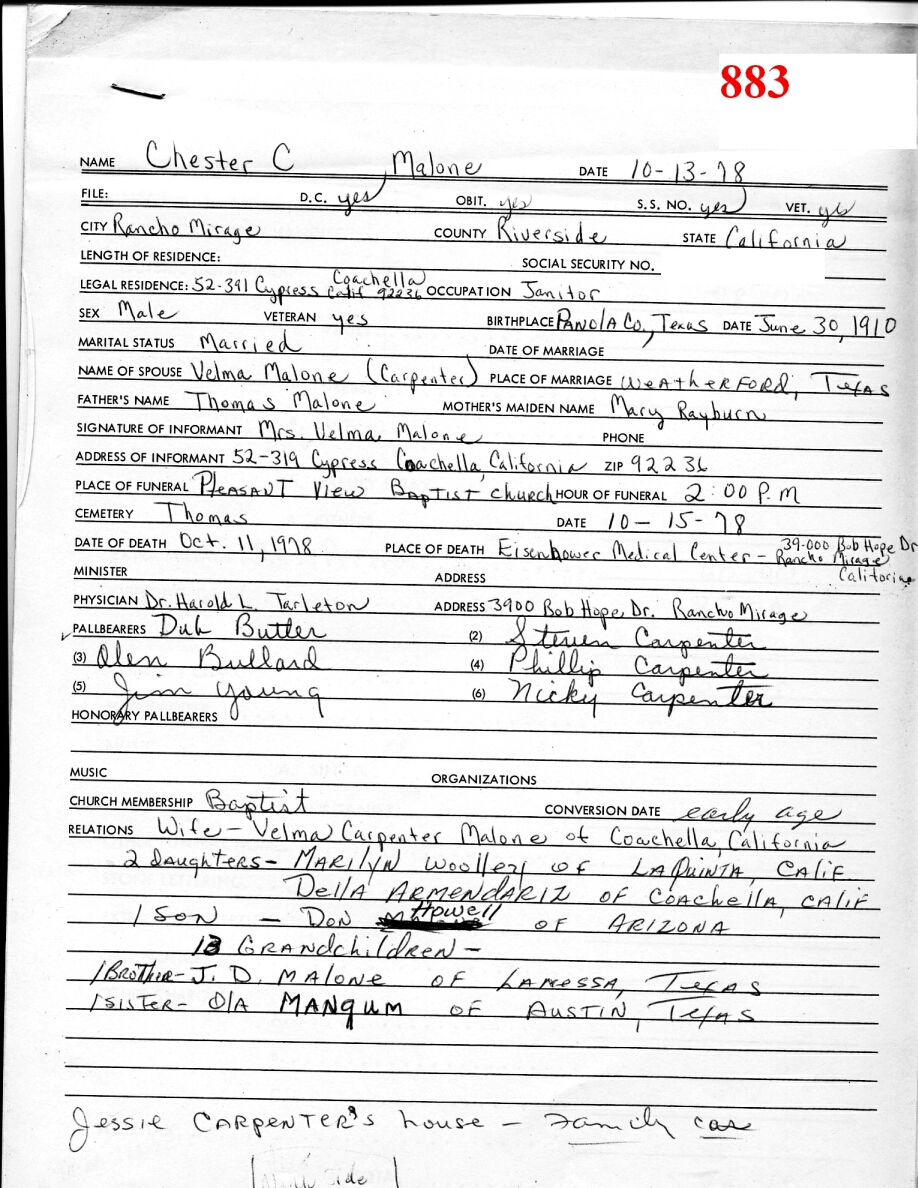 883
NAME Chester C Malone DATE 10-13-78
FILE: D.C. yes OBIT. yes S.S. NO. yes VET. yes
CITY Rancho Mirage COUNTY Riverside STATE California
LENGTH OF RESIDENCE: SOCIAL SECURITY NO.
LEGAL RESIDENCE: 52-391 Cypress Coachella Calif 92236 OCCUPATION Janitor
SEX Male VETERAN yes BIRTHPLACE PANOLA Co., Texas DATE June 30, 1910
MARITAL STATUS Married DATE OF MARRIAGE
NAME OF SPOUSE Velma Malone (Carpenter) PLACE OF MARRIAGE WEATHERFORD, TEXAS
FATHER'S NAME Thomas Malone MOTHER'S MAIDEN NAME Mary Rayburn
SIGNATURE OF INFORMANT Mrs. Velma Malone PHONE
ADDRESS OF INFORMANT 52-319 Cypress Coachella, California ZIP 92236
PLACE OF FUNERAL PLEASANT View BAPTIST church HOUR OF FUNERAL 2:00 P.M
CEMETERY Thomas DATE 10-15-78
DATE OF DEATH Oct. 11, 1978 PLACE OF DEATH Eisenhower Medical Center - 39-000 Bob Hope Dr Rancho Mirage California
MINISTER ADDRESS
PHYSICIAN Dr. Harold L. Tarleton ADDRESS 3900 Bob Hope, Dr. Rancho Mirage
PALLBEARERS Dub Butler (2) Steven Carpenter
(3) Olen Bullard (4) Phillip Carpenter
(5) Jim Young (6) Nicky Carpenter
HONORARY PALLBEARERS
MUSIC ORGANIZATIONS
CHURCH MEMBERSHIP Baptist CONVERSION DATE early age
RELATIONS Wife - Velma Carpenter Malone of Coachella, California
2 daughters - MARILYN Woolley OF LAQUINTA, CALIF
Della ARMENDARIZ OF COACHELLA, CALIF
1 SON - DON Howell OF ARIZONA
13 GRANDchildREN -
1 BROTHER - J. D. MALONE OF LAMESSA, TEXAS
1 SISTER - OlA MANGUM OF AUSTIN, TEXAS
Jessie CARPENTER'S house - Family car
side